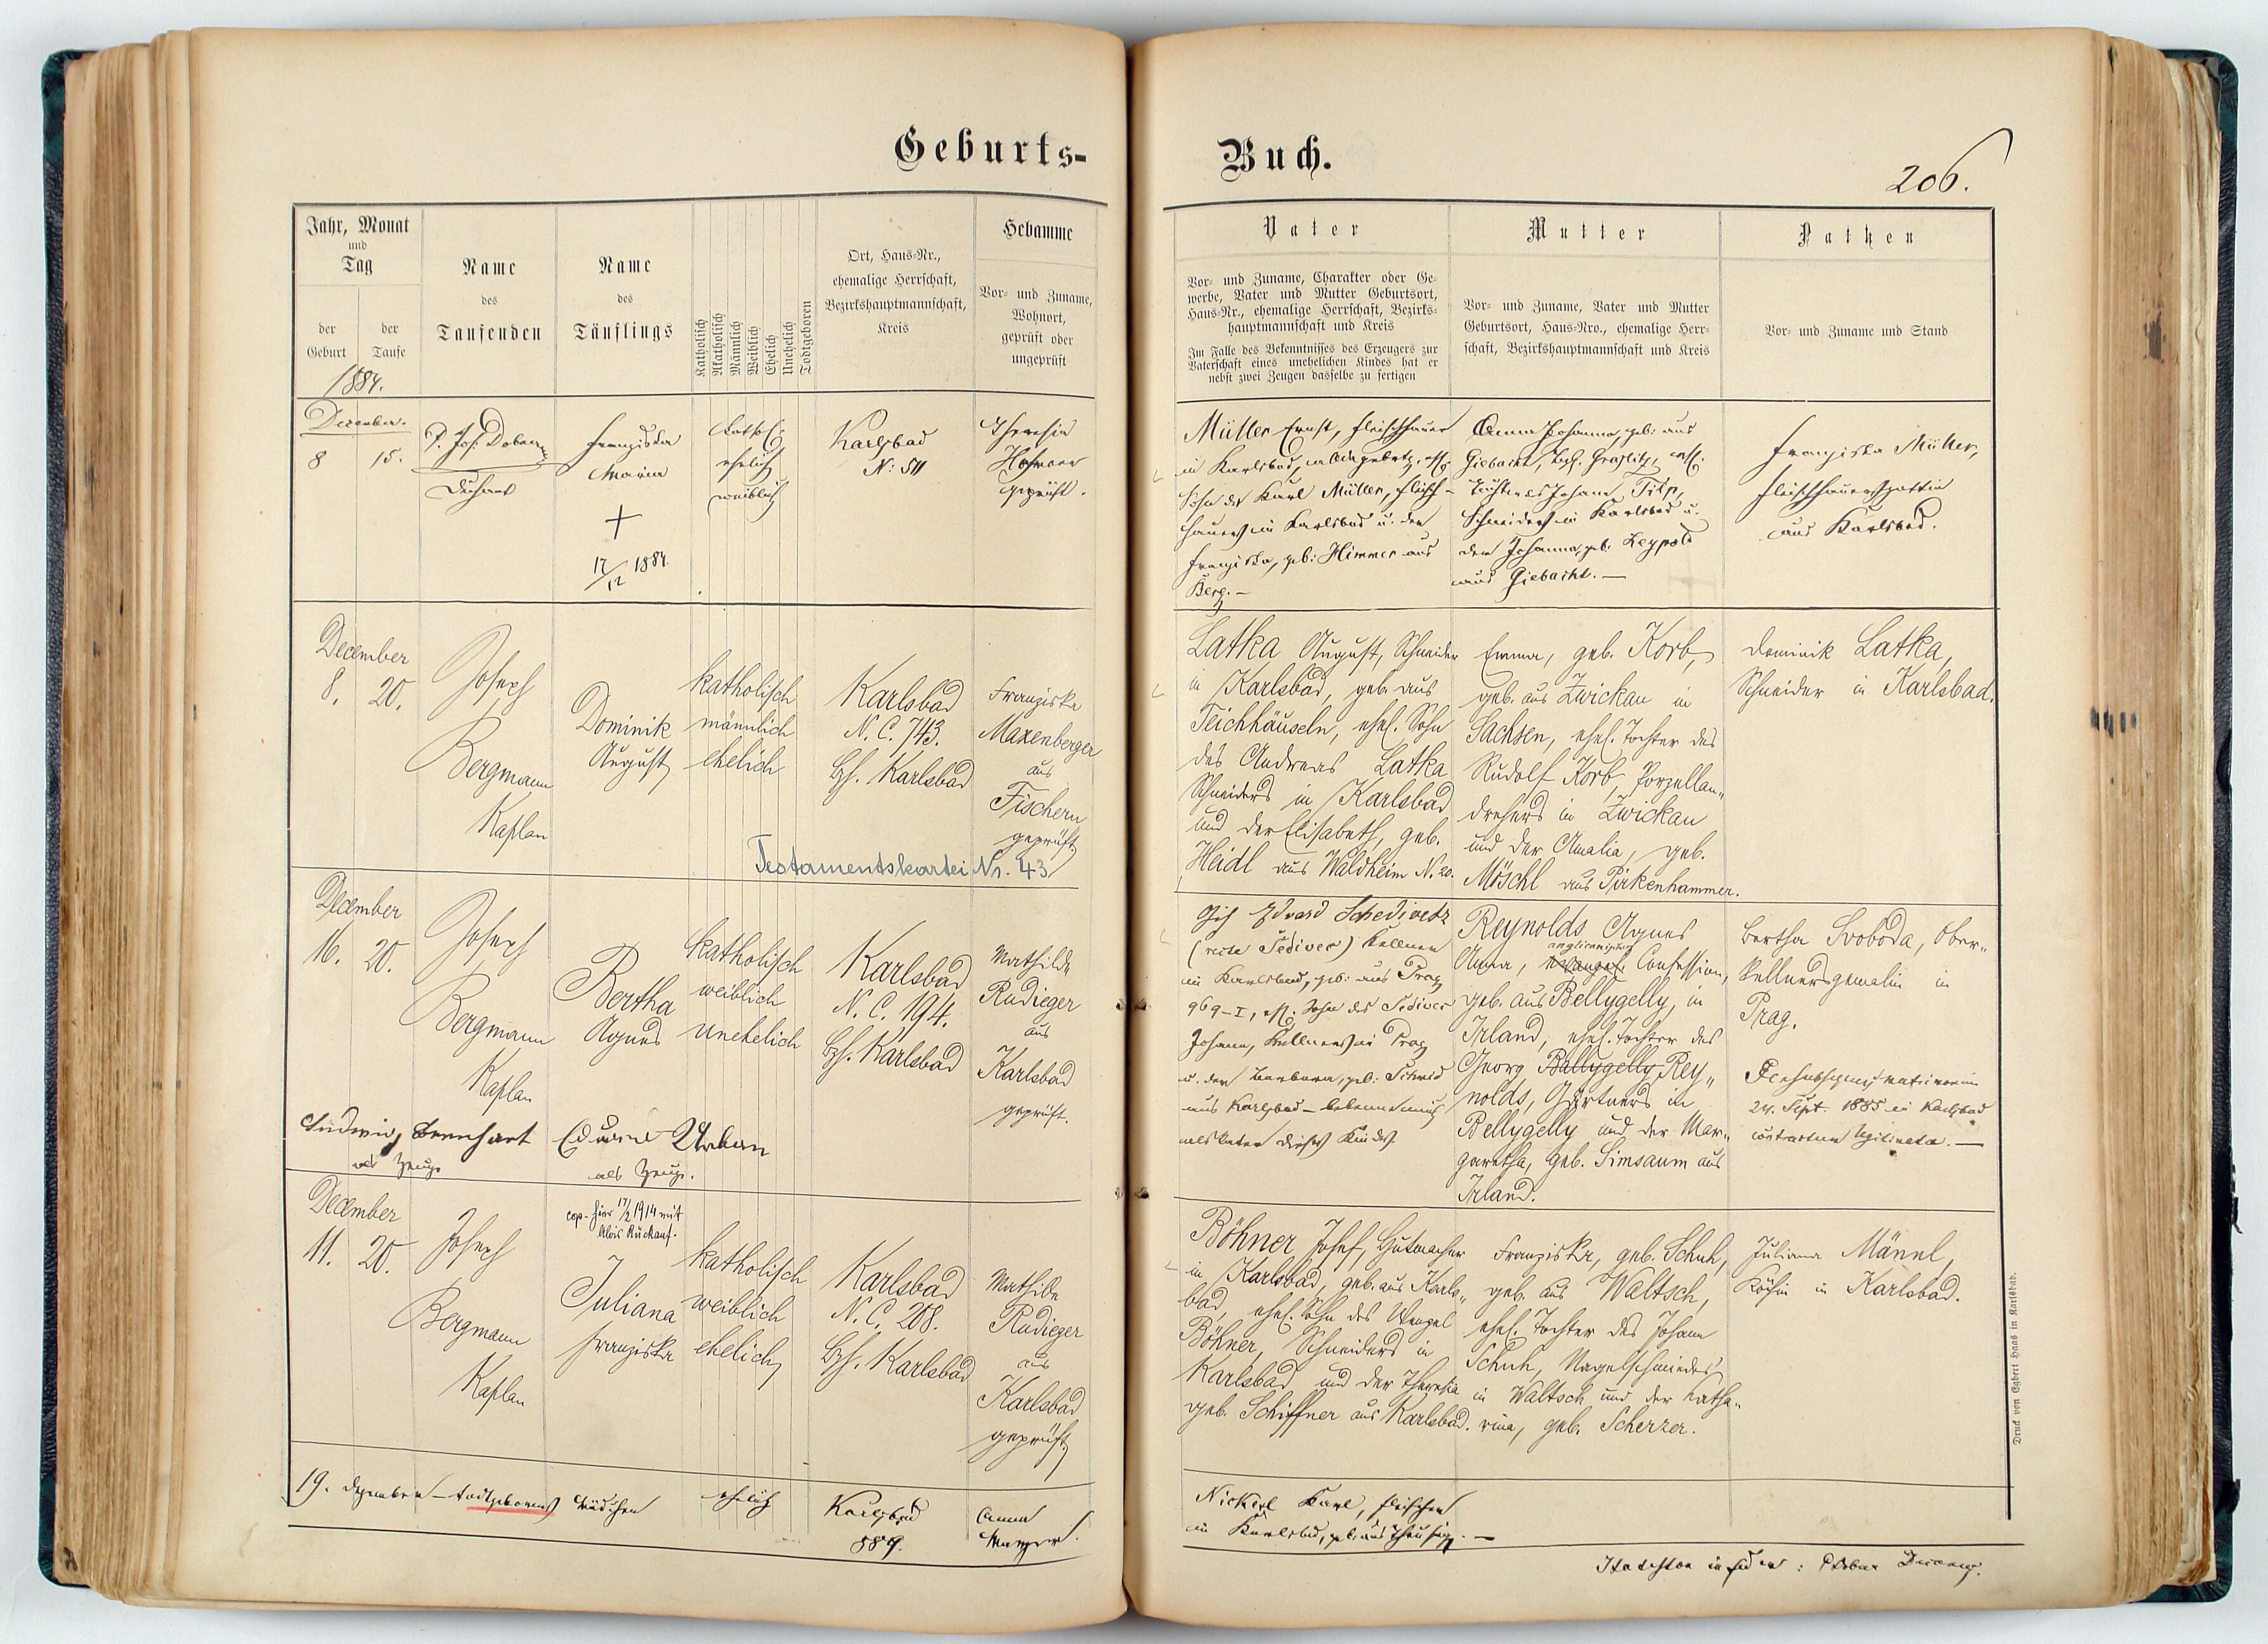 Geburts-
Buch.
206.
Jahr, Monat
und
Tag
der
Geburt
der
Taufe
1884.
Name
des
Taufenden
Name
des
Täuflings
Katholisch
Akatholisch
Männlich
Weiblich
Ehelich
Unehelich
Todtgeboren
Ort, Haus-Nr.,
ehemalige Herrschaft,
Bezirkshauptmannschaft,
Kreis
Hebamme
Vor- und Zuname,
Wohnort,
geprüft oder
ungeprüft
Vater
Vor- und Zuname, Charakter oder Ge-
werbe, Vater und Mutter Geburtsort,
Haus-Nr., ehemalige Herrschaft, Bezirks-
hauptmannschaft und Kreis
Im Falle des Bekenntnisses des Erzeugers zur
Vaterschaft eines unehelichen Kindes hat er
nebst zwei Zeugen dasselbe zu fertigen
Mutter
Vor- und Zuname, Vater und Mutter
Geburtsort, Haus-Nro., ehemalige Herr-
schaft, Bezirkshauptmannschaft und Kreis
Pathen
Vor- und Zuname und Stand
December.
8 15.
P. Jos. Dobner
Dechant
Franziska
Maria
+
17/12 1884.
kathol.
ehelich
weiblich
Karlsbad
N: 511
Theresia
geprüft.
Müller Ernst, Fleischhauer
in Karlsbad,
Sohn des Karl Müller, Fleisch-
hauers in Karlsbad u. der
Franziska, geb: Himmer aus
Berg. –
Anna Johanna, geb: aus
Giebacht, Bez. Graslitz, ehl.
Tochter des Johann Titz,
Schneiders in Karlsbad u.
der Johanna, geb. Leypold
aus Giebacht. —
Franziska Müller,
Fleischhauersgattin
aus Karlsbad.
December
8. 20.
Joseph
Bergmann
Kaplan
Dominik
August
katholisch
männlich
ehelich
Karlsbad
N. C. 743.
Bzh. Karlsbad
Franziska
Maxenberger
aus
Fischern
geprüft.
Testamentskartei Nr. 43
Latka August, Schneider
in Karlsbad, geb. aus
Teichhäuseln, ehel. Sohn
des Andreas Latka
Schneiders in Karlsbad
und der Elisabeth, geb.
Heidl aus Waldheim N. 20.
Emma, geb. Korb,
geb. aus Zwickau in
Sachsen, ehel. Tochter des
Rudolf Korb, Porzellan„
drehers in Zwickau
und der Amalia, geb.
Möschl aus Pirkenhammer.
Dominik Latka,
Schneider in Karlsbad.
December
16. 20.
Joseph
Bergmann
Kaplan
Bertha
Agnes
katholisch
weiblich
unehelich
Karlsbad
N. C. 194.
Bzh. Karlsbad
Mathilde
Rudieger
aus
Karlsbad
geprüft.
Ludwig Bernhart
als Zeuge
Eduard Urban
als Zeuge.
Ich Eduard Schediwetz
(recte Sedivec) Kellner
in Karlsbad, geb: aus Prag
969-I, ehl. Sohn des Sedivec
Johann, Kellners in Prag
u. der Barbara, geb: Schmid
aus Karlsbad – bekenne mich
als Vater dieses Kindes
Reynolds Agnes
anglicanischer
Anna, evangel. Confession,
geb. aus Bellygelly, in
Irland, ehel. Tochter des
Georg Ballygelly Rey„
nolds, Gärtners in
Bellygelly und der Mar„
garetha, geb. Simsaum aus
Irland.
Bertha Svoboda, Ober„
kellnersgemalin in
Prag.
Per subsequens matrimonium
24. Sept. 1885 in Karlsbad
contractum legitimata. —
December
11. 20.
Joseph
Bergmann
Kaplan
cop. hier 17/2 1914 mit
Alois Rückauf.
Juliana
Franziska
katholisch
weiblich
ehelich
Karlsbad
N. C. 208.
Bzh. Karlsbad
Mathilde
Rudieger
aus
Karlsbad
geprüft
Böhner Josef, Hutmacher
in Karlsbad, geb. aus Karls„
bad, ehel. Sohn des Wenzel
Böhner, Schneiders in
Karlsbad und der Theresia
geb. Schiffner aus Karlsbad.
Franziska, geb. Schuh,
geb. aus Waltsch,
ehel. Tochter des Johann
Schuh, Nagelschmiedes
in Waltsch und der Katha„
rina, geb. Scherzer.
Juliana Männl,
Köchin in Karlsbad.
19. Dezember – todtgeborenes Mädchen
ehelich
Karlsbad
589.
Anna
Nickerl Karl, Fleischer
in Karlsbad, geb. aus Theusing. —
Druck von Egbert Haas in Karlsbad.